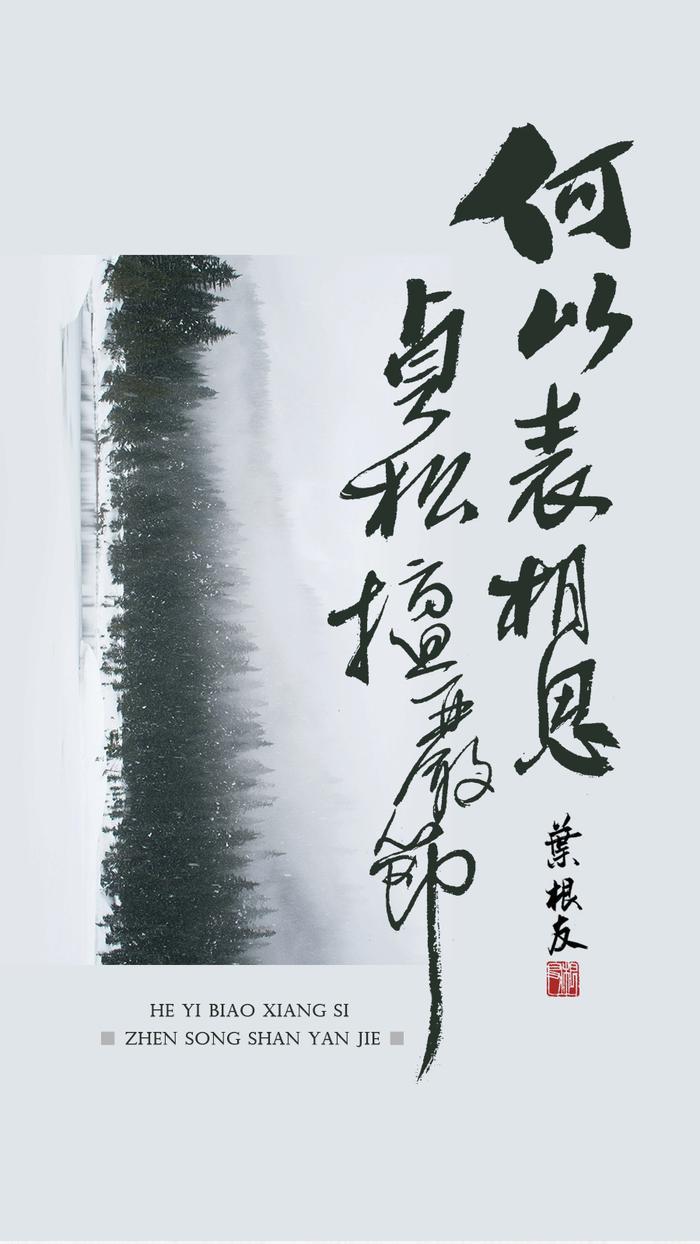 何以表相思
貞松擅嚴節
葉根友
HE YI BIAO XIANG SI
ZHEN SONG SHAN YAN JIE